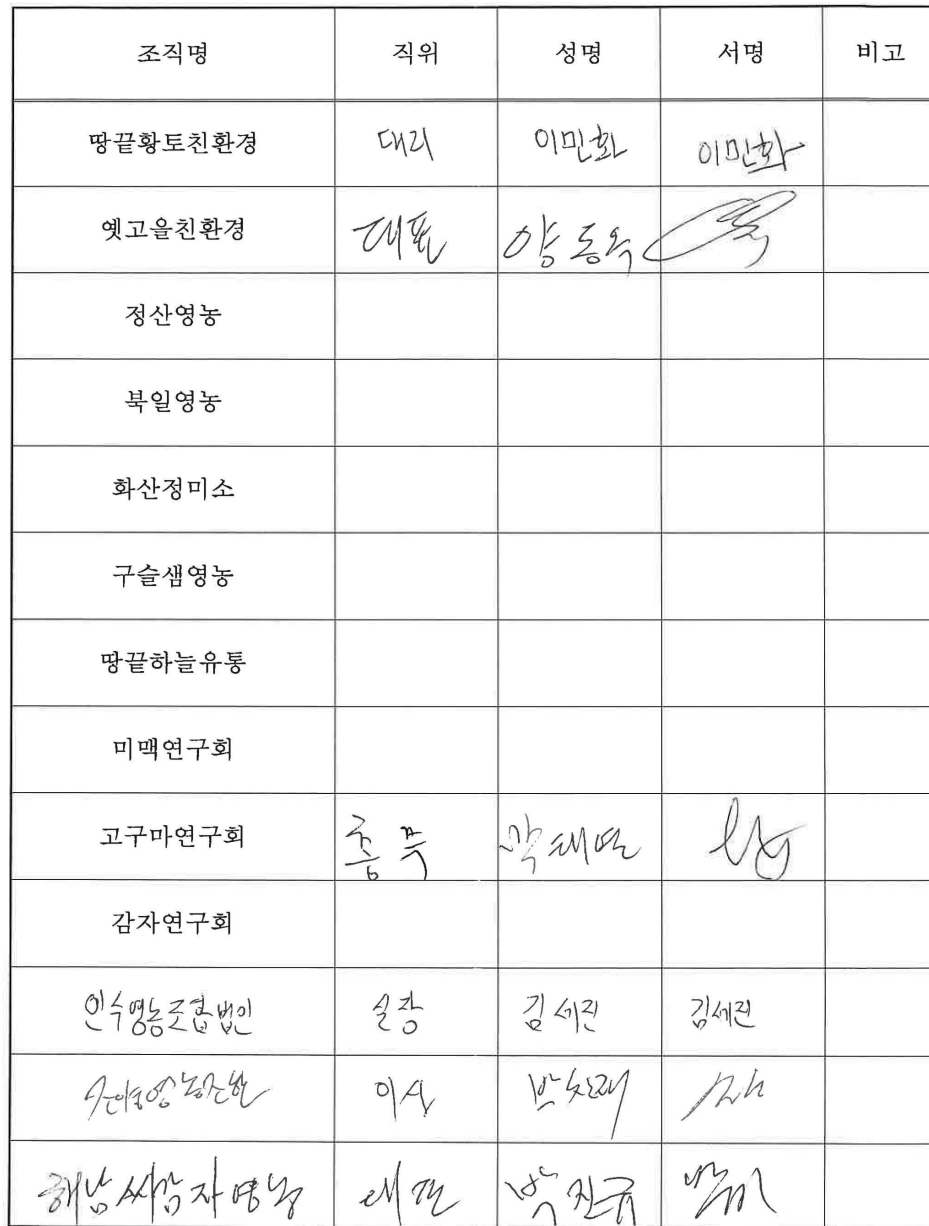 조직명 직위 성명 서명 비고
땅끝황토친환경 대리 이민화 이민화
옛고을친환경 대표 양동욱
정산영농
북일영농
화산정미소
구슬샘영농
땅끝하늘유통
미맥연구회
고구마연구회 총무
감자연구회
인수영농조합법인 실장 김세진 김세진
이사
해남씨감자영농 대표 박진규